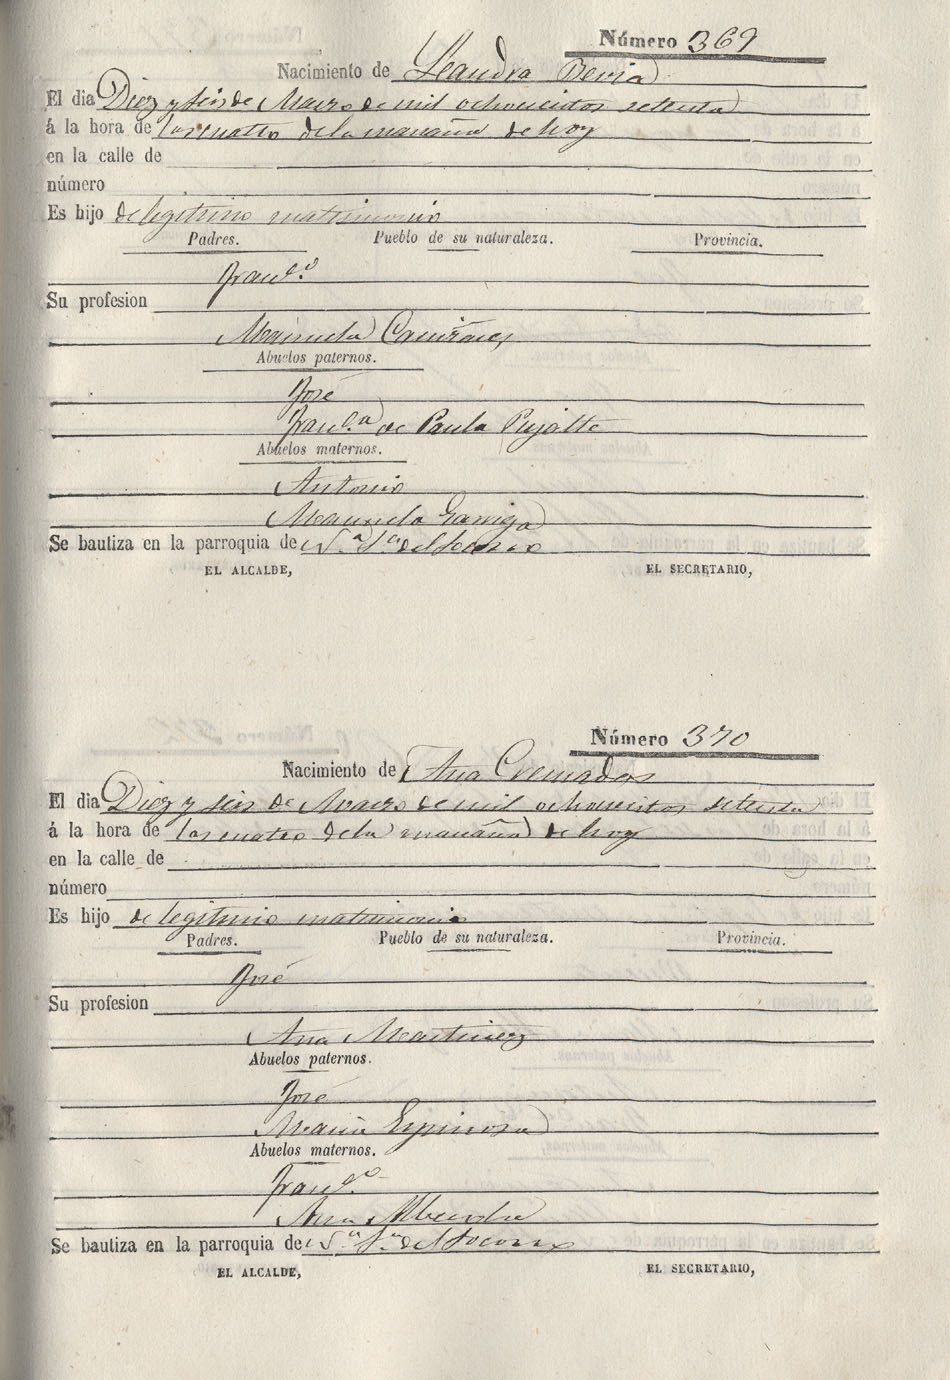 Número 369
Nacimiento de Leandra Bevia
El dia Diez y seis de Marzo de mil ochocientos setenta
á la hora de las cuatro de la mañana de hoy
en la calle de
número
Es hijo de legitimo matrimonio
Padres. Pueblo de su naturaleza. Provincia.
Franco.
Su profesion
Manuela
Abuelos paternos.
José
Franca. de Paula Pujalte
Abuelos maternos.
Antonio
Manuela Garriga
Se bautiza en la parroquia de Na. Sa. del Socorro
EL ALCALDE, EL SECRETARIO,
Número 370
Nacimiento de Ana Cremades
El dia Diez y seis de Marzo de mil ochocientos setenta
á la hora de las cuatro de la mañana de hoy
en la calle de
número
Es hijo de legitimo matrimonio
Padres. Pueblo de su naturaleza. Provincia.
José
Su profesion
Ana Martinez
Abuelos paternos.
José
Maria Espinosa
Abuelos maternos.
Franco.
Ana
Se bautiza en la parroquia de Na. Sa. del Socorro
EL ALCALDE, EL SECRETARIO,